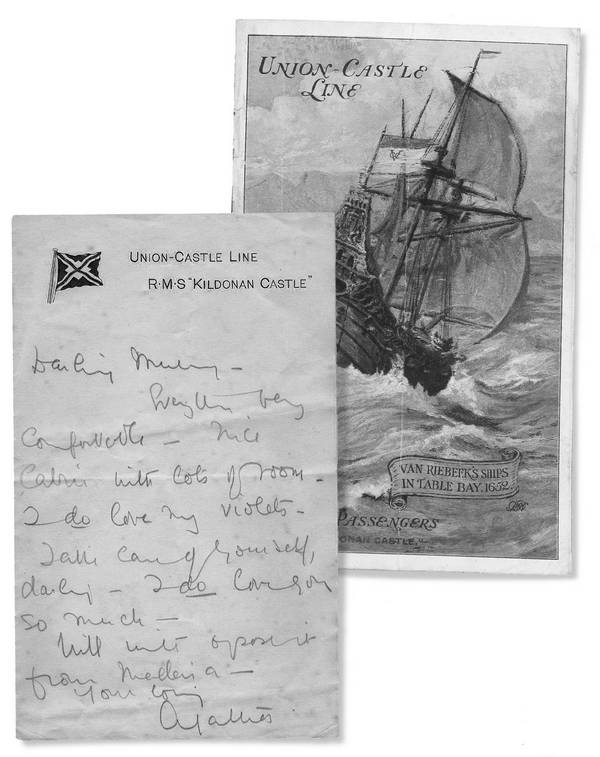 UNION-CASTLE
LINE
VAN RIEBEEK'S SHIPS
IN TABLE BAY. 1652.
PASSENGERS
ONAN CASTLE,"
UNION-CASTLE LINE
R·M·S "KILDONAN CASTLE"
Darling
Everything very
Comfortable – Nice
Cabin with lots of room –
I do love my violets –
Take care of yourself,
darling – I do love you
so much –
Will write
from Madeira –
Your loving
Agatha